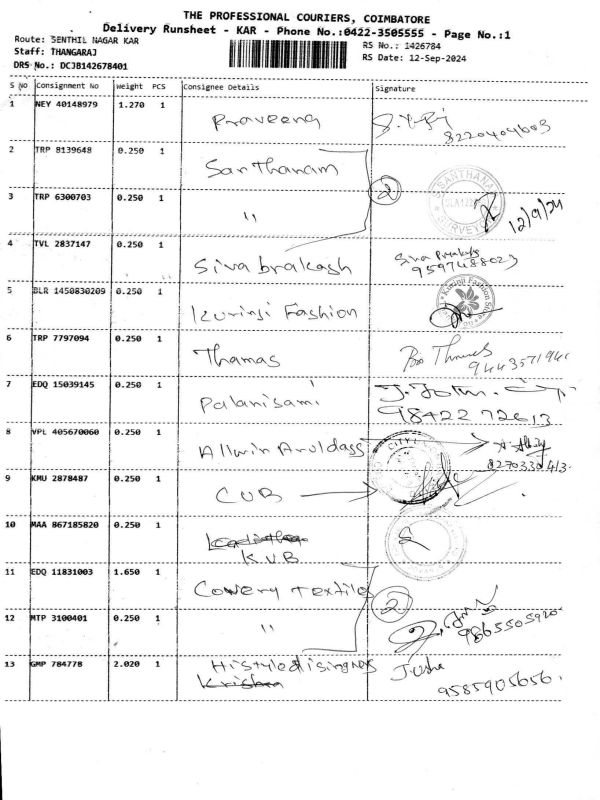 THE PROFESSIONAL COURIERS, COIMBATORE
Delivery Runsheet - KAR - Phone No.:0422-3505555 - Page No.:1
Route: SENTHIL NAGAR KAR
Staff: THANGARAJ
DRS No.: DCJB142678401
RS No.: 1426784
RS Date: 12-Sep-2024
S No Consignment No Weight PCS Consignee Details Signature
1 NEY 40148979 1.270 1 Praveena 8220404603
2 TRP 8139648 0.250 1 Santhanam 2
3 TRP 6300703 0.250 1 " SANTHANA SURVEYS 12/9/24
4 TVL 2837147 0.250 1 Siva brakash Siva Prakash 9597488023
5 BLR 1450830209 0.250 1 Kurinji Fashion Kurinji Fashion
6 TRP 7797094 0.250 1 Thamas
7 EDQ 15039145 0.250 1 Palanisami J. John. 98422 72613
8 VPL 405670060 0.250 1 Allwin Aruldass
9 KMU 2878487 0.250 1 CUB CITY
10 MAA 867185820 0.250 1 KVB
11 EDQ 11831003 1.650 1 Cowery Textiles 2
12 MTP 3100401 0.250 1 " 9865505920
13 GMP 784778 2.020 1 Krishna 9585905656.